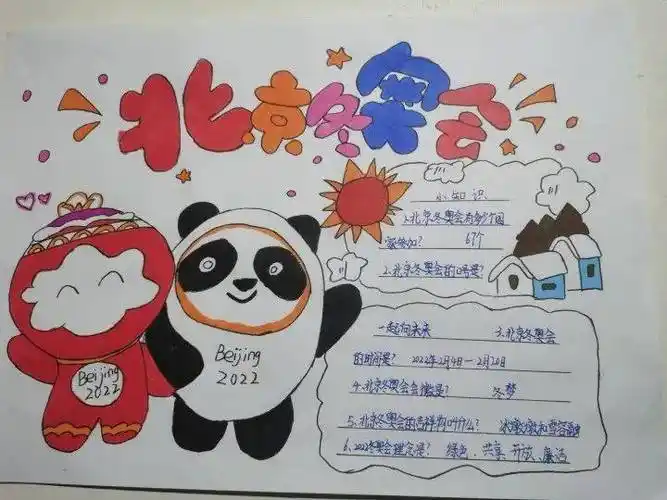 北京冬奥会
小知识
1.北京冬奥会有多少个国
家参加? 67个
2.北京冬奥会的口号是?
一起向未来 3.北京冬奥会
的时间是? 2022年2月4日—2月20日
4.北京冬奥会会徽是? 冬梦
5.北京冬奥会的吉祥物叫什么? 冰墩墩和雪容融
6.2022冬奥会理念是? 绿色、共享、开放、廉洁
Beijing
2022
Beijing
2022